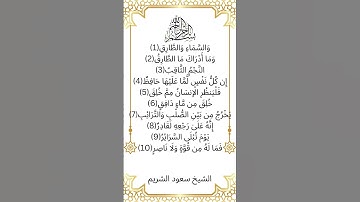 بسم الله الرحمن الرحيم
وَالسَّمَاءِ وَالطَّارِقِ(1)
وَمَا أَدْرَاكَ مَا الطَّارِقُ(2)
النَّجْمُ الثَّاقِبُ(3)
إِن كُلُّ نَفْسٍ لَّمَّا عَلَيْهَا حَافِظٌ(4)
فَلْيَنظُرِ الْإِنسَانُ مِمَّ خُلِقَ(5)
خُلِقَ مِن مَّاءٍ دَافِقٍ(6)
يَخْرُجُ مِن بَيْنِ الصُّلْبِ وَالتَّرَائِبِ(7)
إِنَّهُ عَلَىٰ رَجْعِهِ لَقَادِرٌ(8)
يَوْمَ تُبْلَى السَّرَائِرُ(9)
فَمَا لَهُ مِن قُوَّةٍ وَلَا نَاصِرٍ(10)
الشيخ سعود الشريم